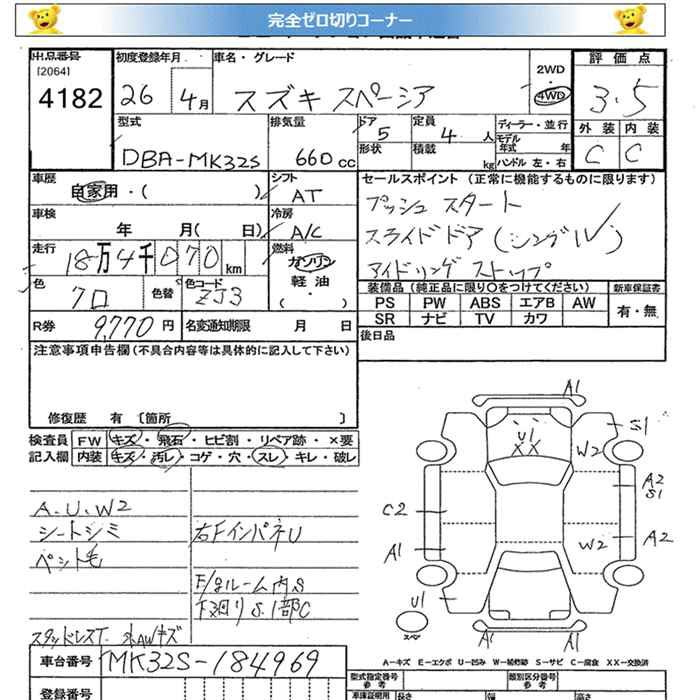 完全ゼロ切りコーナー
出品番号 初度登録年月 車名・グレード 2WD 評価点
[2064]
4182 26 4月 スズキ スペーシア ・ 4WD 3.5
型式 排気量 ドア 定員 ディーラー・並行 外装 内装
DBA-MK32S 660cc 5 4人 モデル年式 年 C C
形状 積載 kg ハンドル 左・右
車歴 シフト セールスポイント (正常に機能するものに限ります)
自家用・( ) AT プッシュスタート
車検 冷房
年 月( 日) A/C スライドドア(シングル)
走行 燃料
18万4千070km ガソリン アイドリングストップ
色 色替 色コード 軽油 装備品(純正品に限り○をつけてください) 新車保証書
クロ ZJ3 ( ・ ) PS PW ABS エアB AW 有・無
R券 9,770円 名変通知期限 月 日 SR ナビ TV カワ
注意事項申告欄(不具合内容等は具体的に記入して下さい) 後日品
修復歴 有 〔箇所 〕
検査員 FW キズ・飛石・ヒビ割・リペア跡・×要
記入欄 内装 キズ・汚レ・コゲ・穴・スレ・キレ・破レ
A1
S1
U1
XX W2
A2
S1
C2
A1 W2 A2
U1
スペヤ
A1 A1
A.U.W2
シートシミ 右FインパネU
ペット毛
F/gルーム内S
下廻りS.1部C
スタッドレスT. 外AWキズ
A－キズ E－エクボ U－凹み W－補修跡 S－サビ C－腐食 XX－交換済
車台番号 MK32S-184969 型式指定番号 参考 類別区分番号 参考
登録番号 長さ 幅 高さ